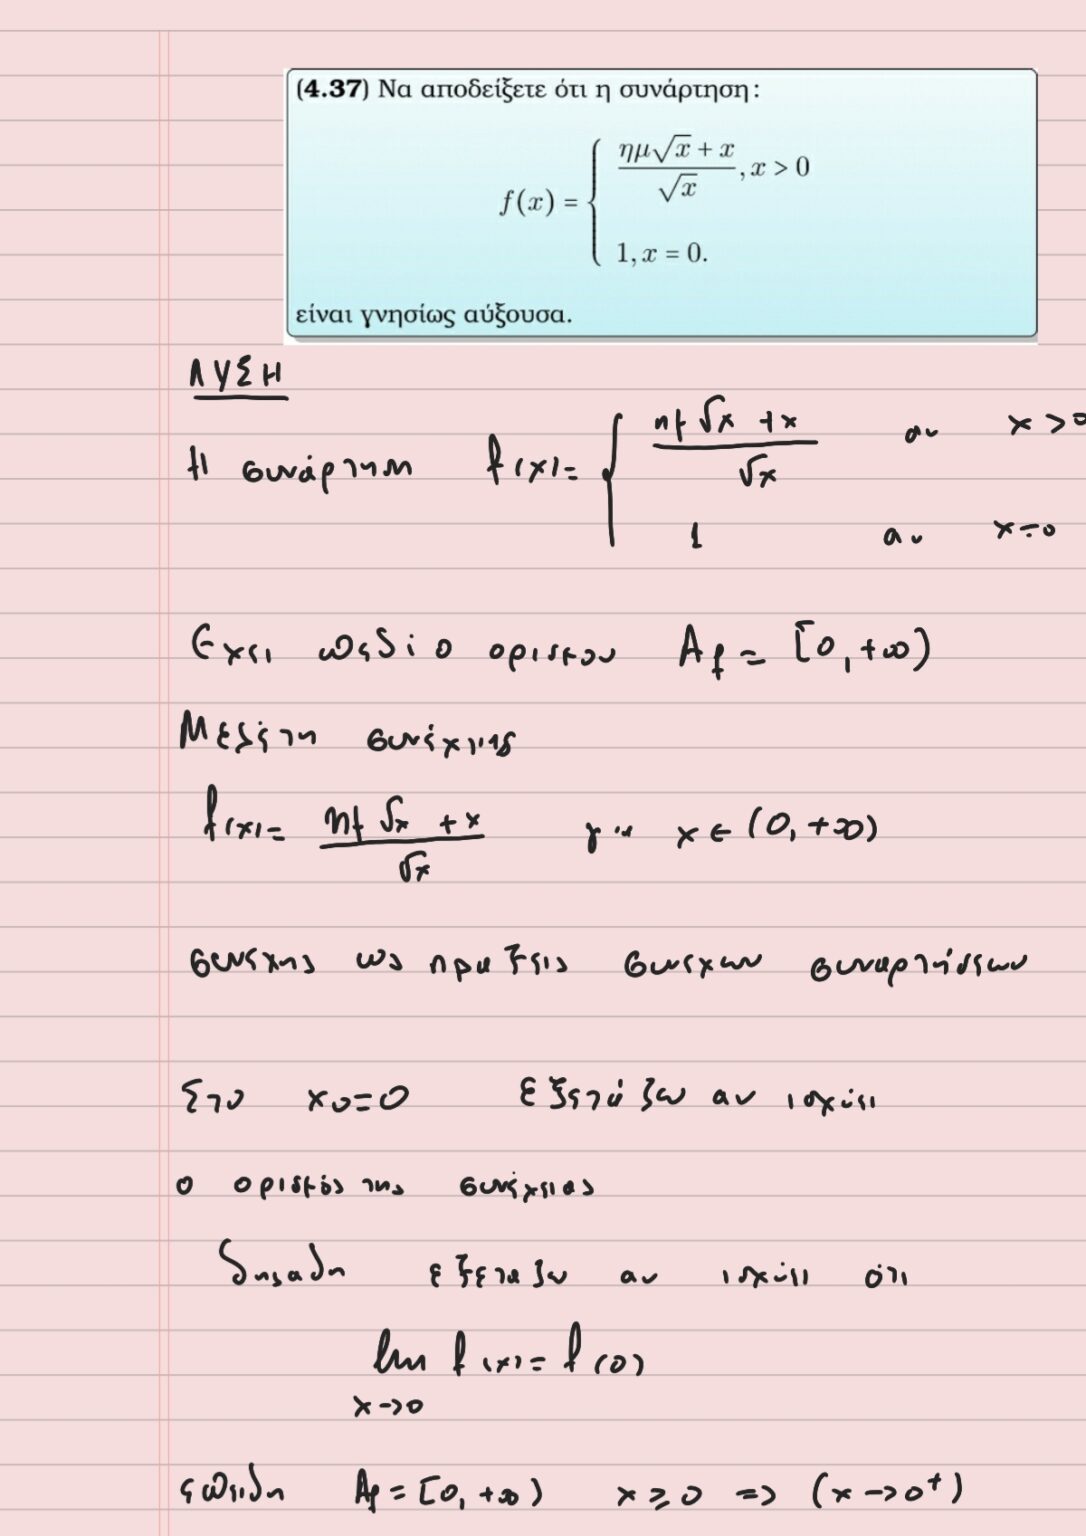 (4.37) Να αποδείξετε ότι η συνάρτηση:
f(x) = { (ημ√x + x)/√x, x > 0
1, x = 0.
είναι γνησίως αύξουσα.
ΛΥΣΗ
Η συνάρτηση f(x) = { (ημ√x + x)/√x αν x > 0
1 αν x = 0
Εχει πεδίο ορισμου Af = [0, +∞)
Μελέτη συνέχειας
f(x) = (ημ√x + x)/√x για x ∈ (0, +∞)
συνεχης ως πραξεις συνεχων συναρτήσεων
Στο x0=0 εξετάζω αν ισχύει
ο ορισμός της συνέχειας
δηλαδη εξεταζω αν ισχύει ότι
lim f(x) = f(0)
x→0
επειδη Af = [0, +∞) x ≥ 0 => (x→0+)